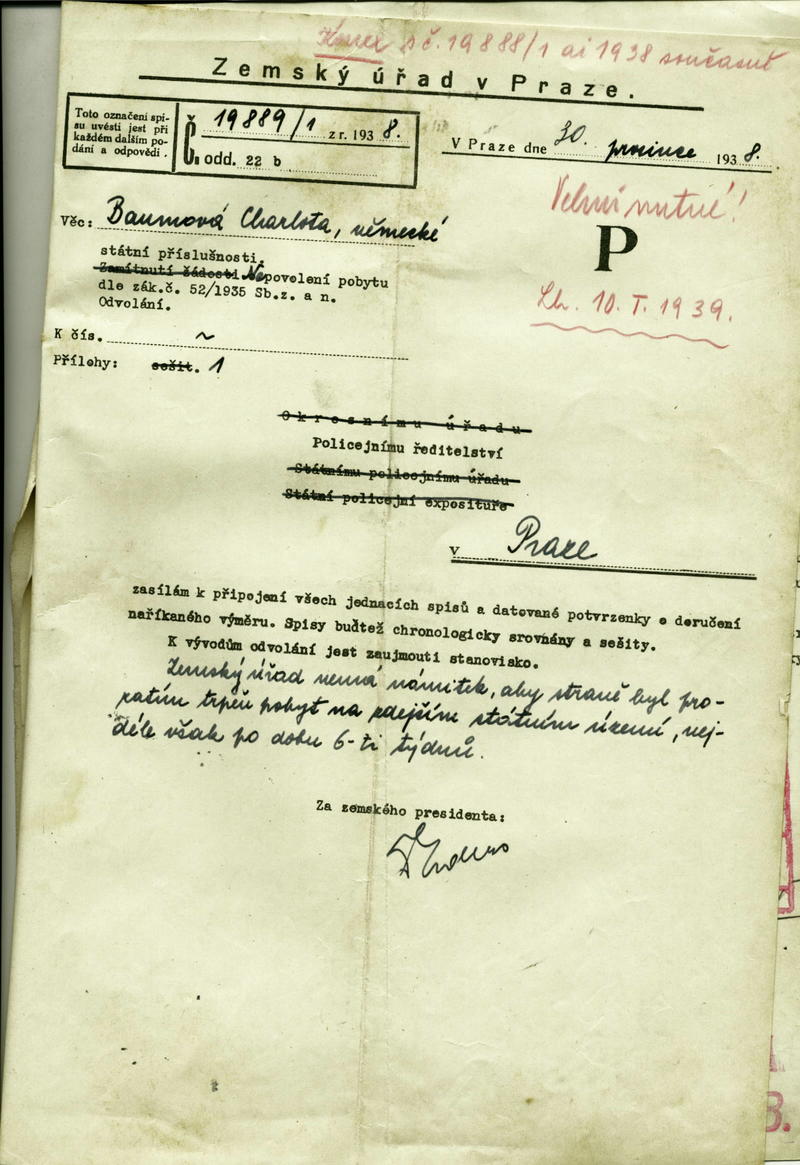 s č. 19888/1 ai 1938 současně
Zemský úřad v Praze.
Toto označení spi-
su uvésti jest při
každém dalším po-
dání a odpovědi.
Č. 19889/1 z r. 1938.
odd. 22 b
V Praze dne 30. prosince 1938.
Velmi nutné!
P
Lh. 10. I. 1939.
Věc: Baumová Charlota, německé
státní příslušnosti.
Zamítnutí žádosti Nepovolení pobytu
dle zák.č. 52/1935 Sb.z. a n.
Odvolání.
K čís. ~
Přílohy: sešit. 1
Okresnímu úřadu
Policejnímu ředitelství
Státnímu policejnímu úřadu
Státní policejní exposituře
v Praze
zasílám k připojení všech jednacích spisů a datované potvrzenky o doručení
naříkaného výměru. Spisy buďtež chronologicky srovnány a sešity.
K vývodům odvolání jest zaujmouti stanovisko.
Zemský úřad nemá námitek, aby straně byl pro-
zatím trpěn pobyt na zdejším státním území, nej-
déle však po dobu 6-ti týdnů.
Za zemského presidenta: